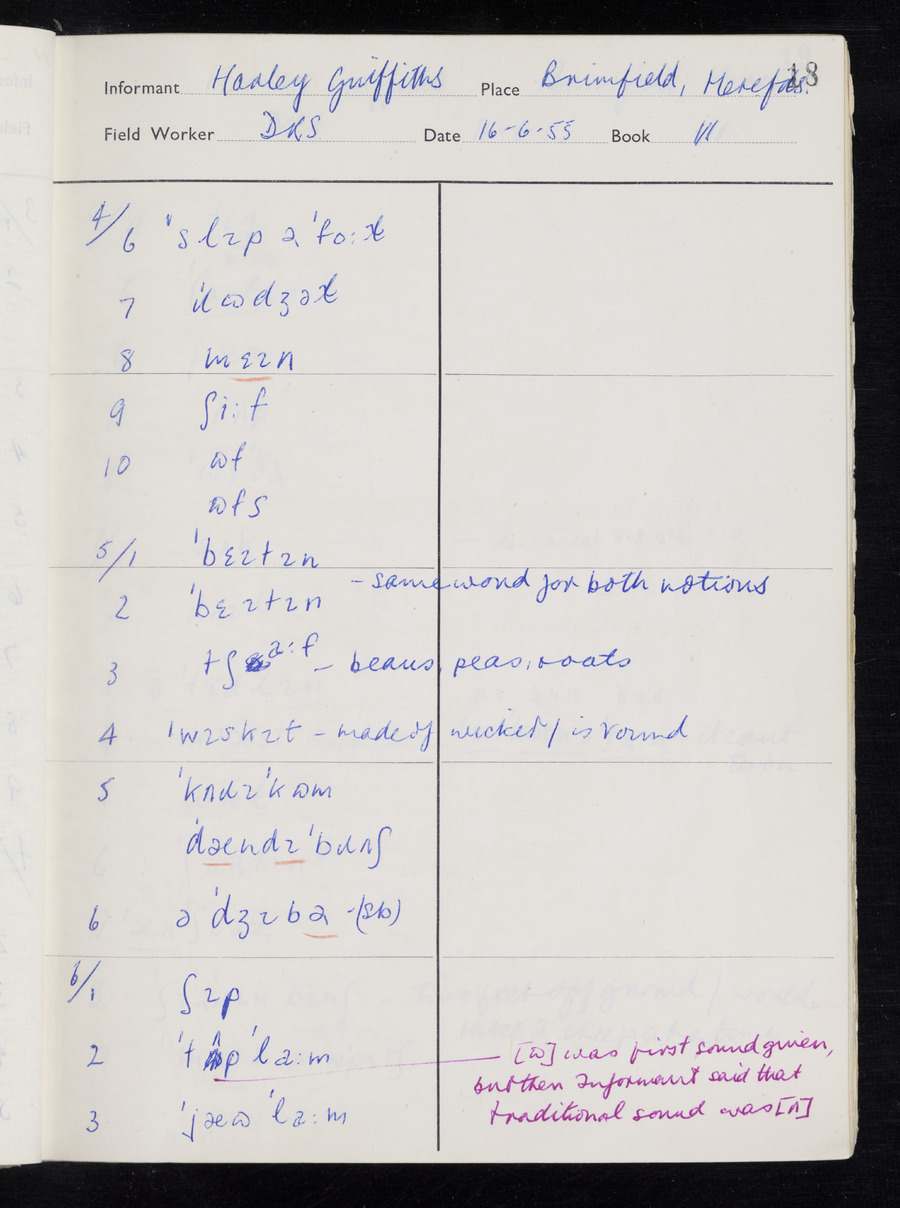 18
Informant Harley Griffiths Place Brimfield, Herefds.
Field Worker DRS Date 16-6-55 Book VI
4/6 ˈslɪp əˈfoːɫ
7 ˈlɷdʒəɫ
8 mɛɪn
9 ʃiːf
10 ɷf
ɷfs
5/1 ˈbɛɪtɪn
2 ˈbɛɪtɪn - same word for both notions
3 tʃaːf - beans, peas, oats
4 ˈwɪskɪt - made of wicker / is round
5 ˈkʌdɪˈkɷm
ˈdændɪˈbɹʌʃ
6 əˈdʒɪbə - (sb)
6/1 ʃɪp
2 ˈtʌpˈlaːm - [ɷ] was first sound given,
but then informant said that
traditional sound was [ʌ]
3 ˈjæɷˈlaːm